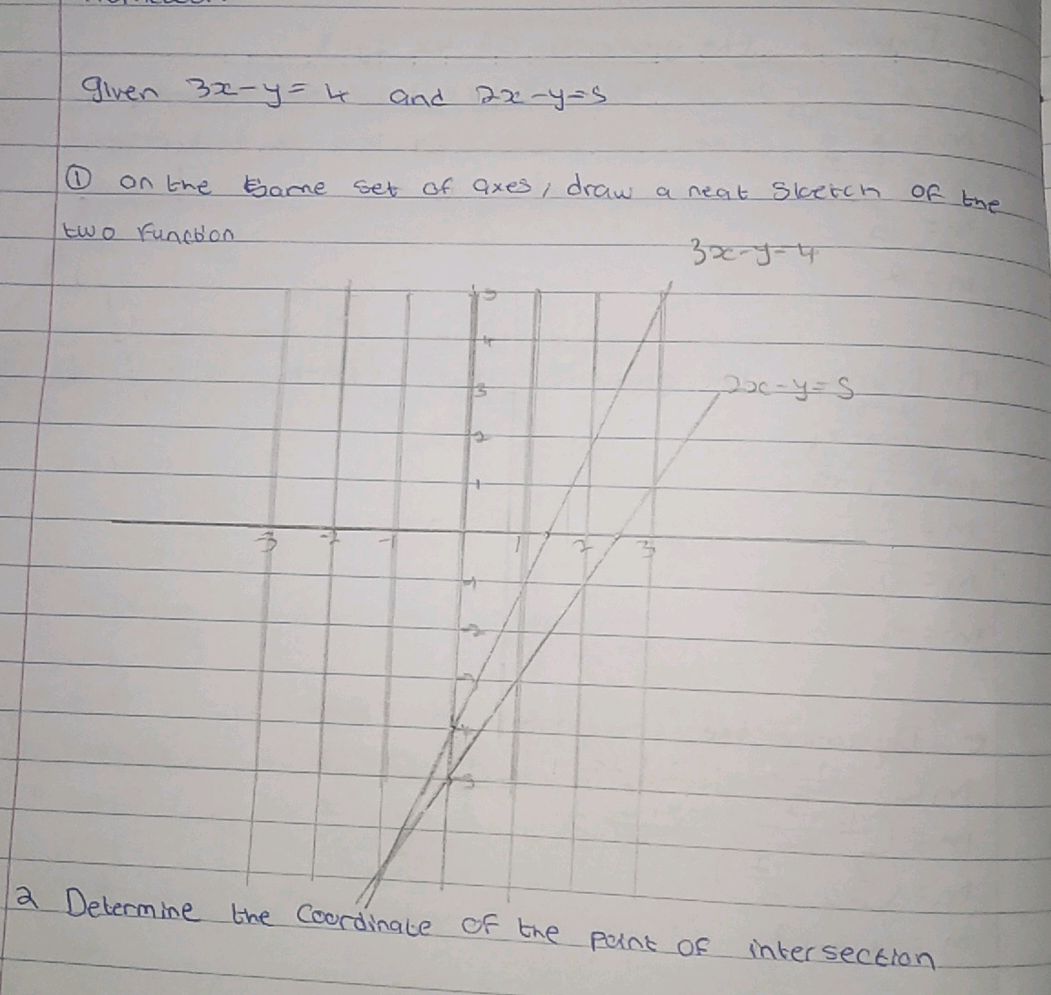 Given 3x-y=4 and 2x-y=5
① on the same set of axes, draw a neat sketch of the
two function
3x-y=4
5
4
3
2x-y=5
2
1
-3 -2 -1 1 2 3
-1
-2
-3
-4
-5
2 Determine the coordinate of the point of intersection